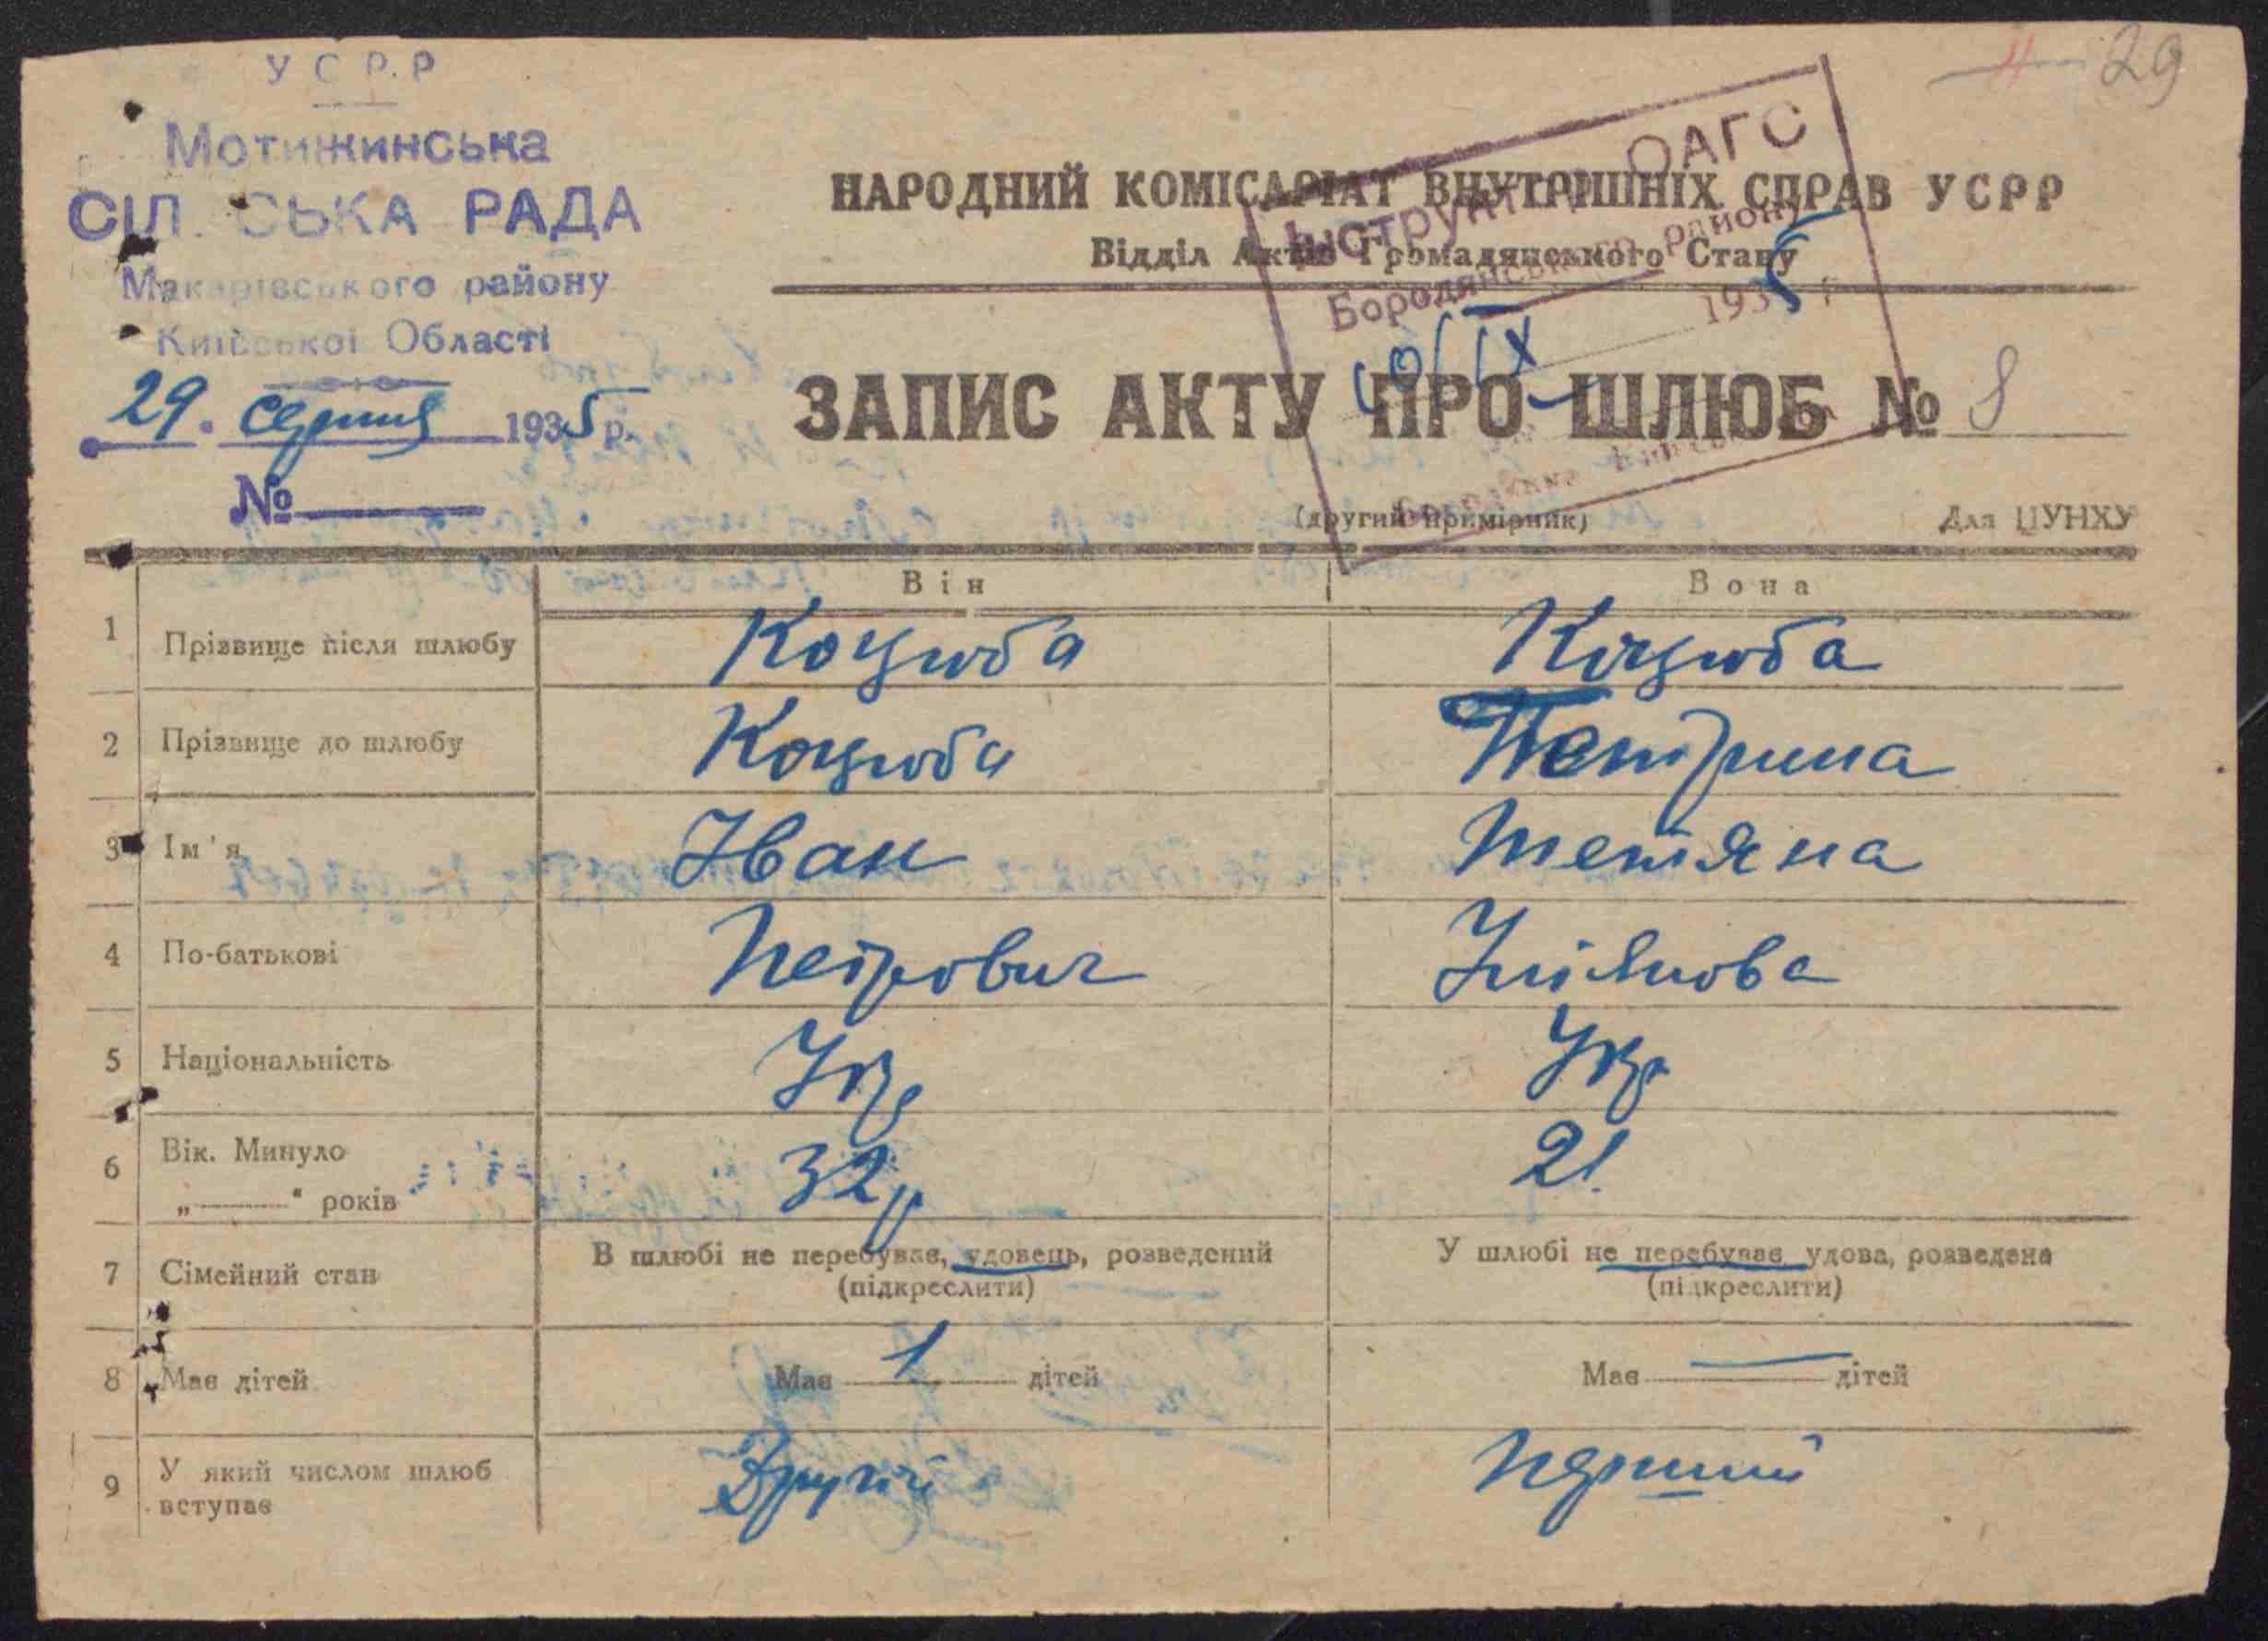 УСР.Р
4 29
Мотижинська
СІЛ СЬКА РАДА
Макарівського району
Київської Області
29. серпня 1935 р.
№
Інструктор ОАГС
Бородянського району
10/IX 1935 г
НАРОДНИЙ КОМІСАРІАТ ВНУТРІШНІХ СПРАВ УСРР
Відділ Актів Громадянського Стану
ЗАПИС АКТУ ПРО ШЛЮБ № 8
(другий примірник) Для ЦУНХУ
Він Вона
1 Прізвище після шлюбу Коцюба Коцюба
2 Прізвище до шлюбу Коцюба Петрина
3 Ім'я Іван Тетяна
4 По-батькові Петрович Улянова
5 Національність Укр Укр
6 Вік. Минуло 32 р 21.
„ “ років
7 Сімейний стан В шлюбі не перебуває, удовець, розведений У шлюбі не перебуває удова, розведена
(підкреслити) (підкреслити)
8 Має дітей Має 1 дітей Має — дітей
9 У який числом шлюб Другий Перший
вступає